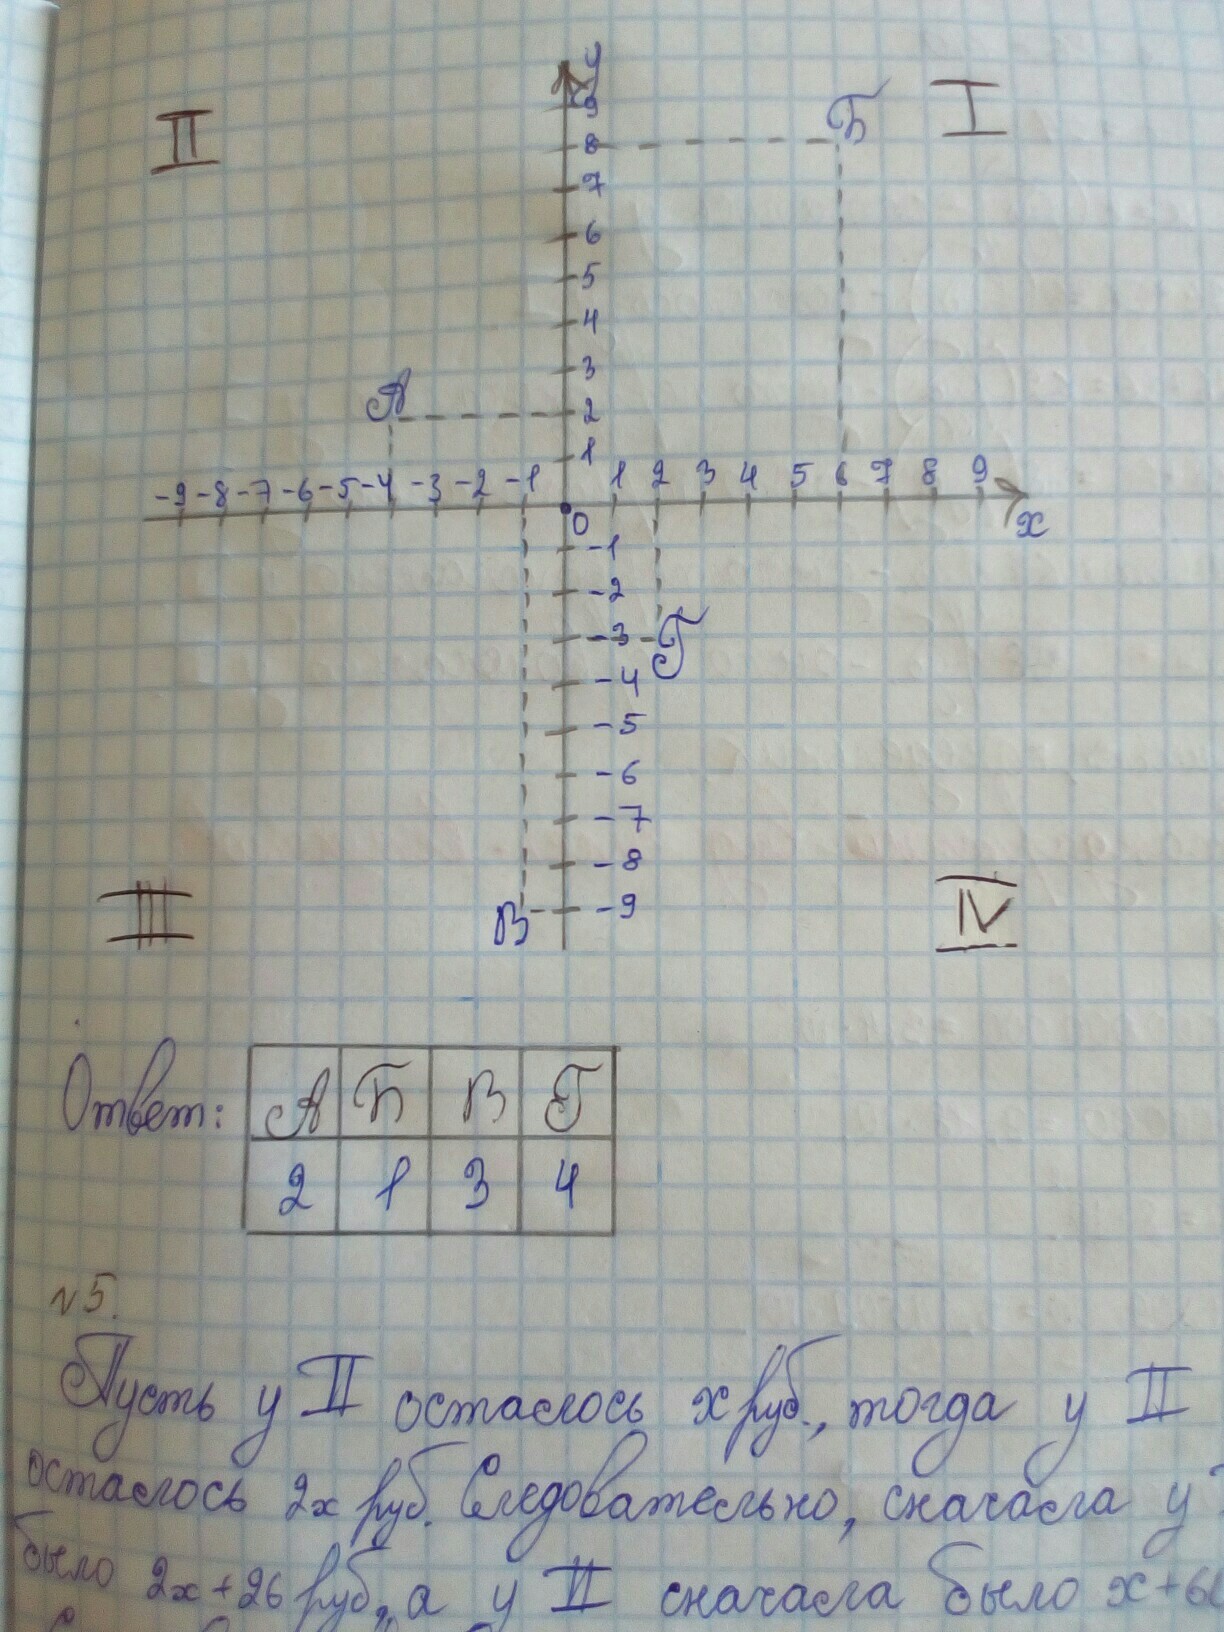 y
9
II
Б
I
8
7
6
5
4
3
А
2
1
-9 -8 -7 -6 -5 -4 -3 -2 -1 1 2 3 4 5 6 7 8 9
0
x
-1
-2
-3
Г
-4
-5
-6
-7
-8
III
IV
В
-9
Ответ:
А Б В Г
2 1 3 4
№5.
Пусть у II осталось x руб., тогда у II
осталось 2x руб. Следовательно, сначала у
было 2x+26 руб., а у II сначала было x+